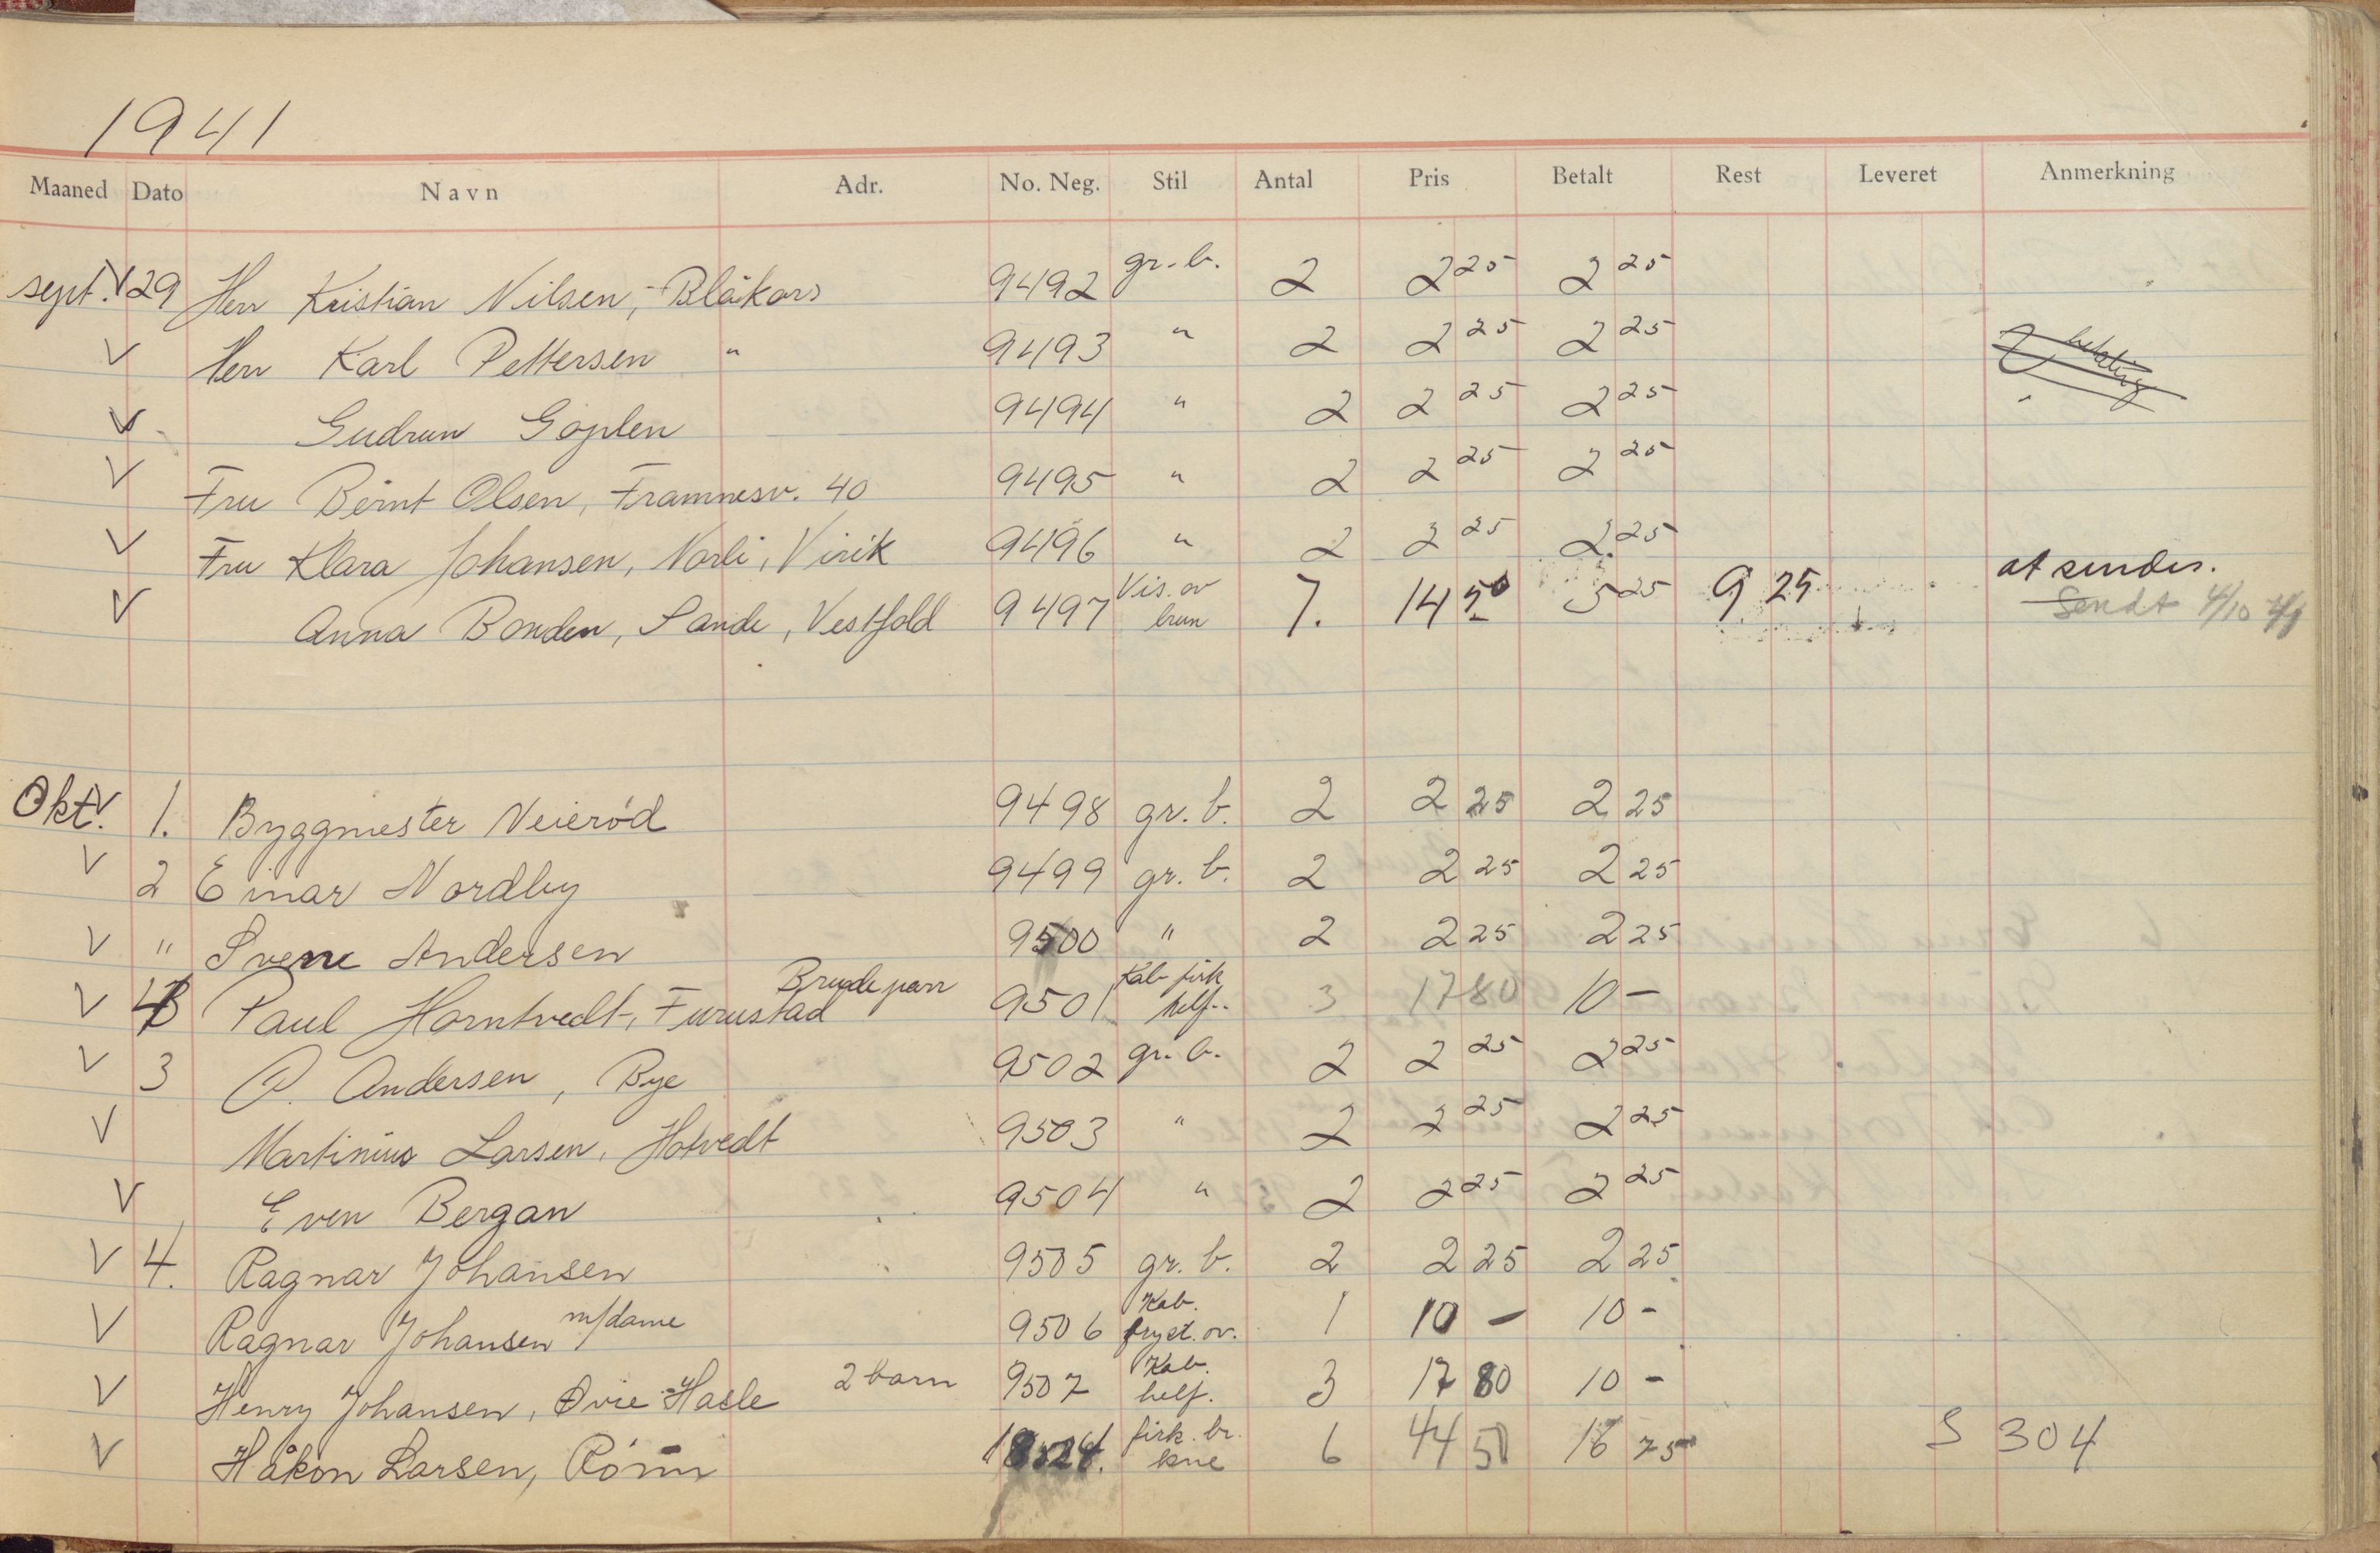 1941
Maaned Dato Navn Adr. No. Neg. Stil Antal Pris Betalt Rest Leveret Anmerkning
sept. V 29 Herr Kristian Nilsen, Blåkors 9492 gr. b. 2 2 25 2 25
V Herr Karl Pettersen " 9493 " 2 2 25 2 25
V Gudrun Goplen 9494 " 2 2 25 2 25
V Fru Bernt Olsen, Framnesv. 40 9495 " 2 2 25 2 25
V Fru Klara Johansen, Norli, Virik 9496 " 2 2 25 2 25
V Anna Bonden, Sande, Vestfold 9497 Vis. ov brun 7. 14 50 5 25 9 25 at sendes.
Sendt 4/10
Okt. V 1. Byggmester Neieröd 9498 gr. b. 2 2 25 2 25
V 2 Einar Nordby 9499 gr. b. 2 2 25 2 25
V " Sverre Andersen 9500 " 2 2 25 2 25
V Paul Horntvedt, Furustad Brudepar 9501 Kab firk helf. 3 17 80 10 -
V 3 O. Andersen, Bye 9502 gr. b. 2 2 25 2 25
V Martinius Larsen, Hotvedt 9503 " 2 2 25 2 25
V Even Bergan 9504 " 2 2 25 2 25
V 4. Ragnar Johansen 9505 gr. b. 2 2 25 2 25
V Ragnar Johansen m/dame 9506 Kab. bryst. ov. 1 10 - 10 -
V Henry Johansen, Øvre Hasle 2 barn 9507 Kab. helf. 3 17 80 10 -
V Håkon Larsen, firk. br. kne 6 44 50 16 75 S 304